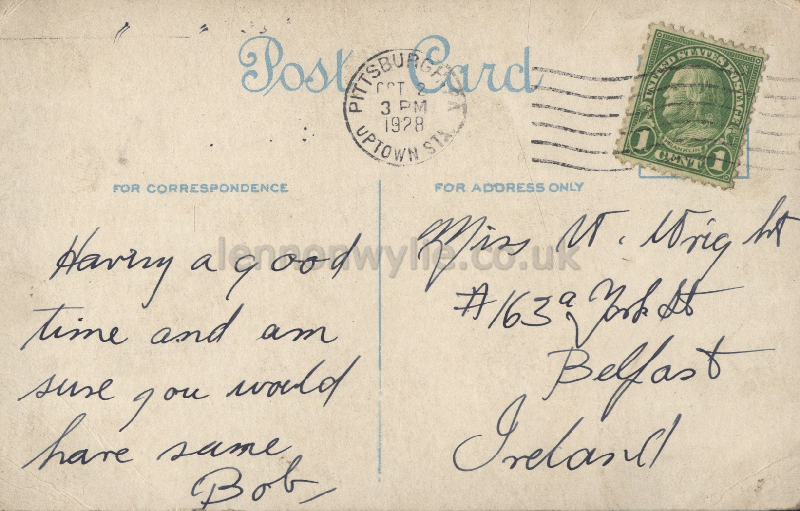 Post Card
PITTSBURGH, PA
OCT 2
3 PM
1928
UPTOWN STA.
UNITED STATES POSTAGE
FRANKLIN
1 CENT 1
FOR CORRESPONDENCE
FOR ADDRESS ONLY
Having a good
time and am
sure you would
have same
Bob
Miss W. Wright
#163a York St
Belfast
Ireland
lennonwylie.co.uk